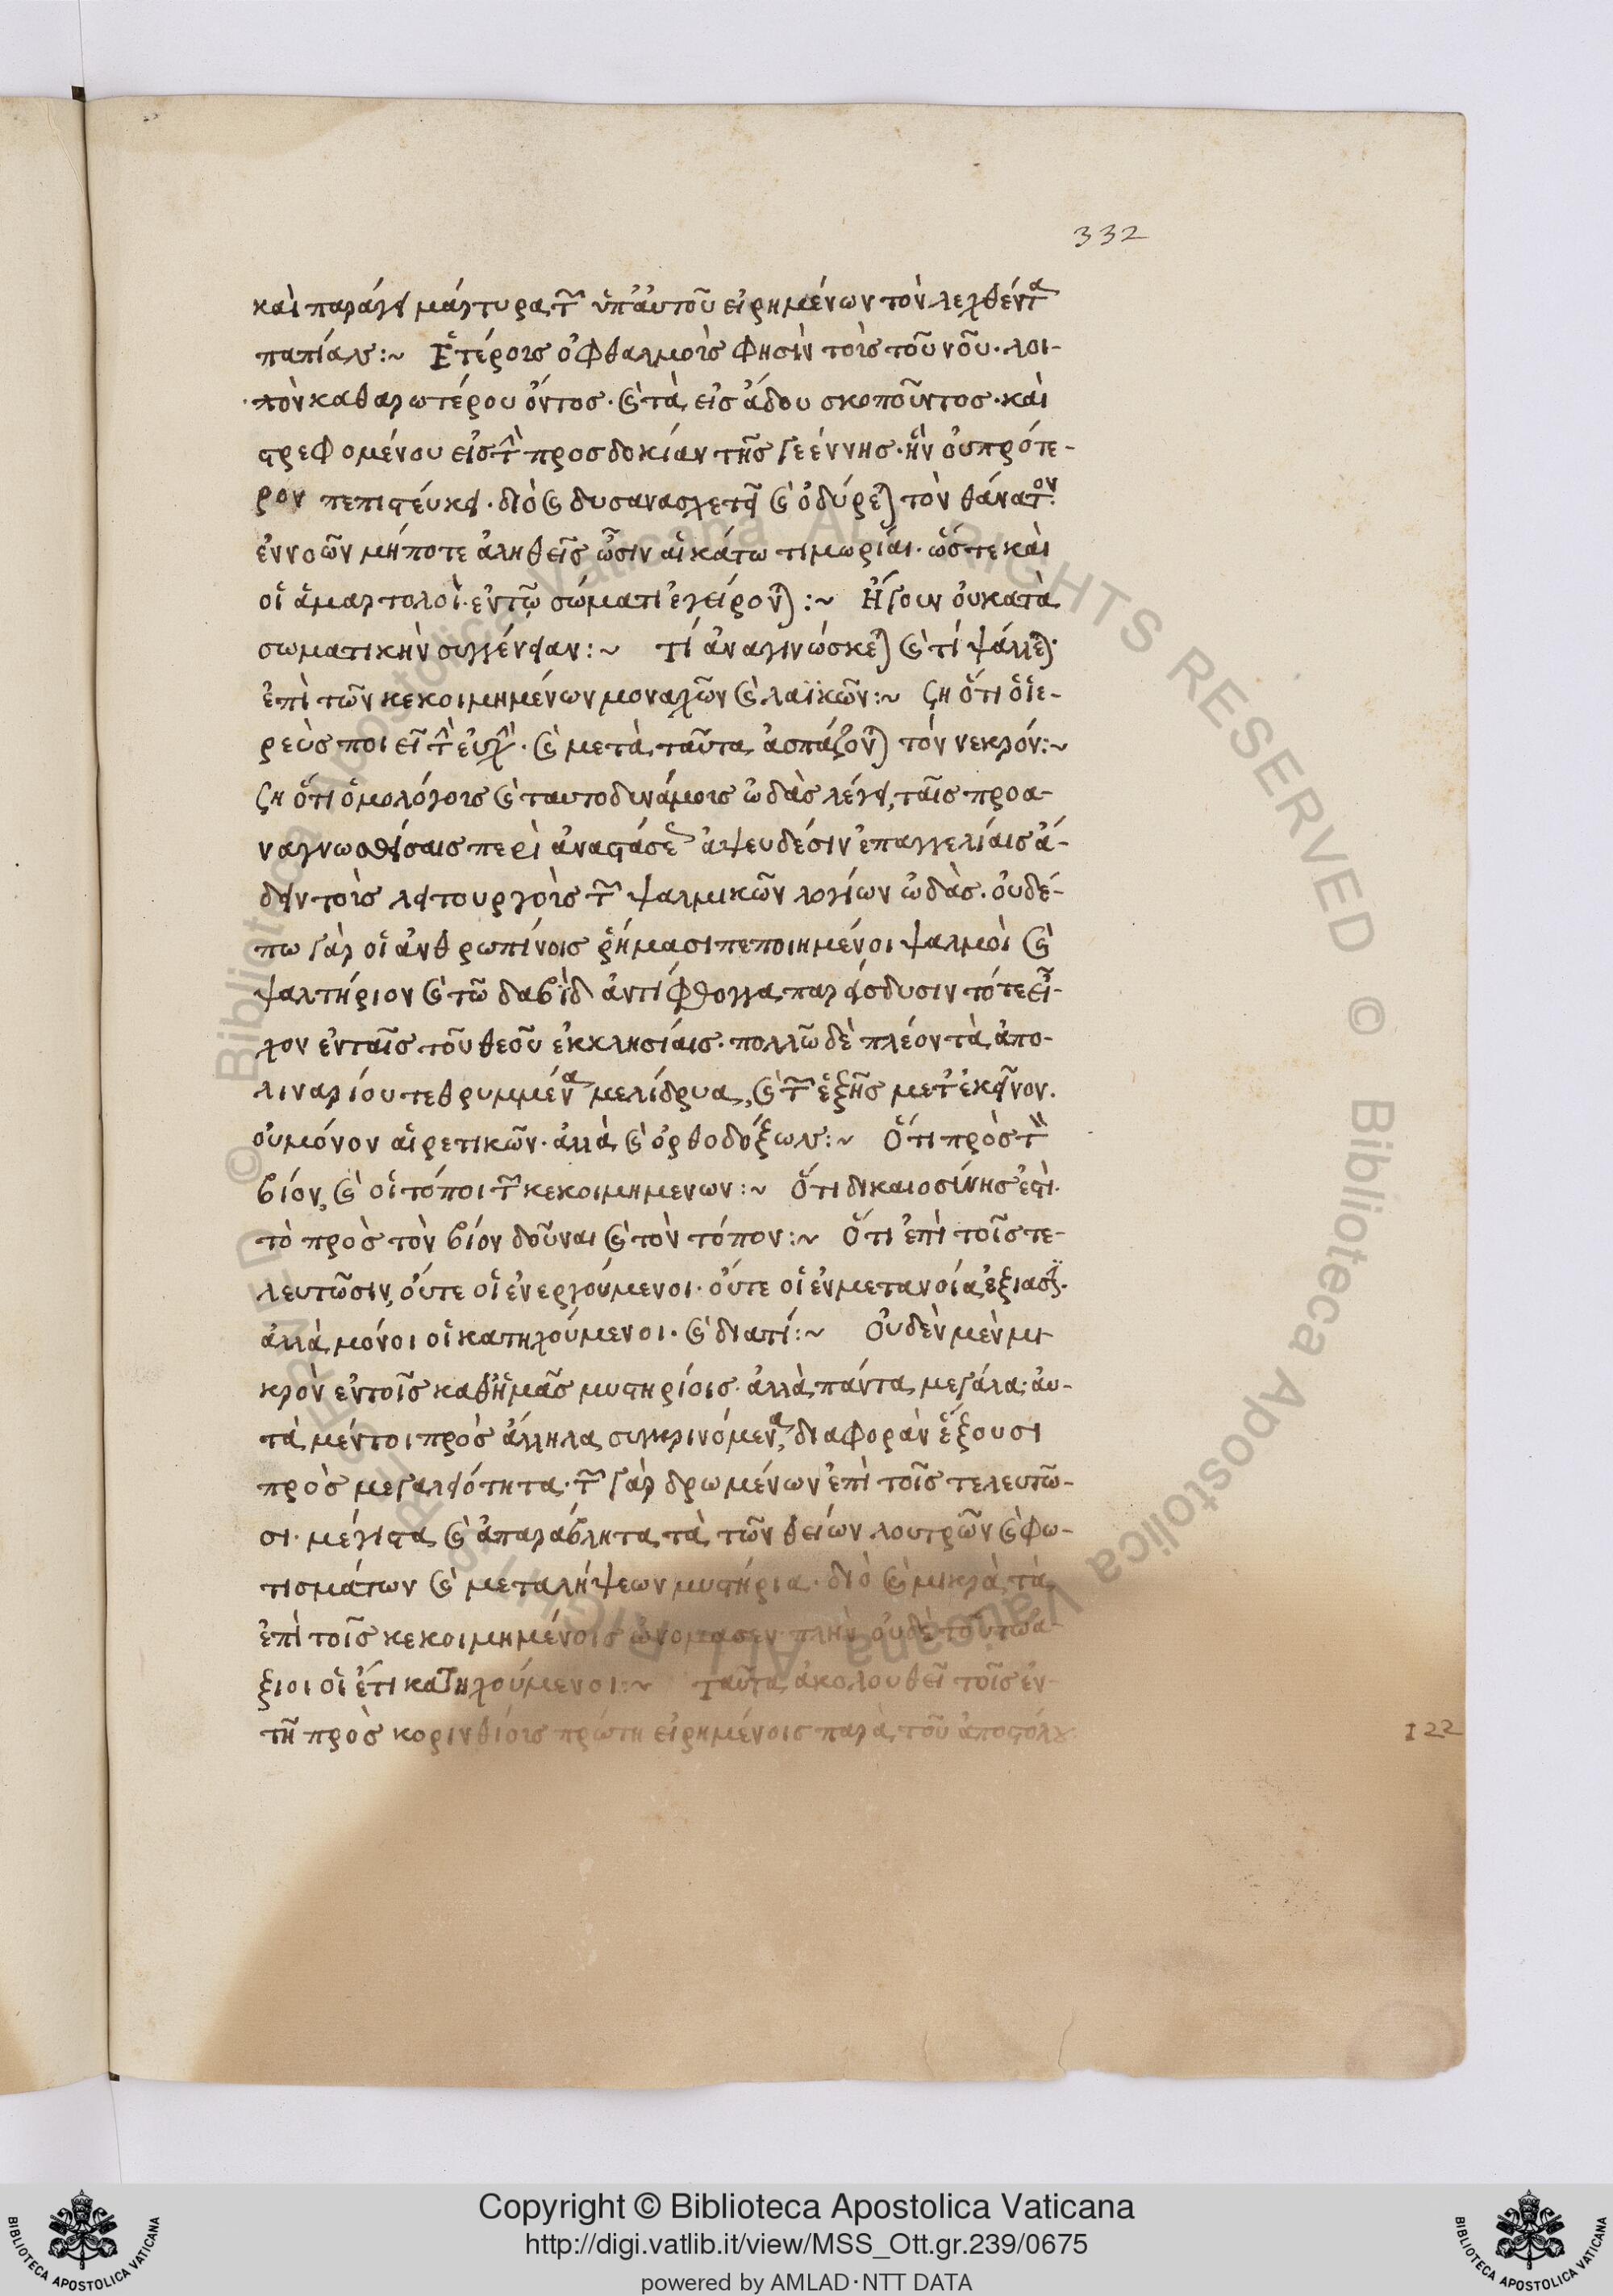 332
καὶ παράγει μάρτυρα τῶν ὑπ' αὐτοῦ εἰρημένων τὸν λεχθέντα
παπίαν :~ Ἑτέροις ὀφθαλμοῖς φησὶν τοῖς τοῦ νοῦ· λοι-
πὸν καθαρωτέρου ὄντος· καὶ τὰ εἰς ἅδου σκοποῦντος· καὶ
στρεφομένου εἰς τὴν προσδοκίαν τῆς γεέννης· ἣν οὐ πρότε-
ρον πεπίστευκει· διὸ καὶ δυσανασχετεῖ καὶ ὀδύρεται τὸν θάνατον·
ἐννοῶν μήποτε ἀληθεῖς ὦσιν αἱ κάτω τιμωρίαι· ὥστε καὶ
οἱ ἁμαρτολοὶ· ἐν τῷ σώματι ἐγείρονται :~ Ἤγουν οὐ κατὰ
σωματικὴν συγγένειαν :~ Τί ἀναγινώσκεται καὶ τί ψάλλεται·
ἐπὶ τῶν κεκοιμημένων μοναχῶν καὶ λαϊκῶν :~ ζη ὅτι ὁ ἱε-
ρεὺς ποιεῖ τὴν εὐχὴν· καὶ μετὰ ταῦτα ἀσπάζονται τὸν νεκρόν :~
ζη ὅτι ὁμολόγοις καὶ ταυτοδυνάμοις ὠδὰς λέγει, ταῖς προα-
ναγνωσθείσαις περὶ ἀναστάσεως ἀψευδέσιν ἐπαγγελίαις ἄ-
δειν τοῖς λειτουργοῖς τῶν ψαλμικῶν λογίων ὠδὰς· οὐδέ-
πω γὰρ οἱ ἀνθρωπίνοις ῥήμασι πεποιημένοι ψαλμοὶ καὶ
ψαλτήριον καὶ τῶ δαβὶδ ἀντίφθογγα παρείσδυσιν τότε εἶ-
χον ἐν ταῖς τοῦ θεοῦ ἐκκλησίαις· πολλῶ δὲ πλέον τὰ ἀπο-
λιναρίου τεθρυμμένα μελίδρυα, καὶ τῶν ἑξῆς μετ' ἐκεῖνον·
οὐ μόνον αἱρετικῶν· ἀλλὰ καὶ ὀρθοδόξων :~ Ὅτι πρὸς τὸν
βίον, καὶ οἱ τόποι τῶν κεκοιμημενων :~ Ὅτι δικαιοσύνης ἐστὶ·
τὸ πρὸς τὸν βίον δοῦναι καὶ τὸν τόπον :~ Ὅτι ἐπὶ τοῖς τε-
λευτῶσιν, οὔτε οἱ ἐνεργούμενοι· οὔτε οἱ ἐν μετανοία
ἀλλὰ μόνοι οἱ κατηχούμενοι· καὶ διατί :~ Οὐδὲν μὲν μι-
κρὸν ἐν τοῖς καθ' ἡμᾶς μυστηρίοις· ἀλλὰ πάντα μεγάλα· αὐ-
τὰ μέντοι πρὸς ἄλληλα συγκρινόμενα, διαφορὰν ἕξουσι
πρὸς μεγαλειότητα· τῶν γὰρ δρωμένων ἐπὶ τοῖς τελευτῶ-
σι· μέγιστα καὶ ἀπαράβλητα τὰ τῶν θείων λουτρῶν καὶ φω-
τισμάτων καὶ μεταλήψεων μυστήρια· διὸ καὶ μικρὰ τὰ
ἐπὶ τοῖς κεκοιμημένοις ὠνόμασεν· πλὴν οὐδὲ τούτω ἄ-
ξιοι οἱ ἔτι κατηχούμενοι :~ Ταῦτα ἀκολουθεῖ τοῖς ἐν
τῆ πρὸς κορινθίοις πρώτη εἰρημένοις παρὰ τοῦ ἀποστόλου
122
© Biblioteca Apostolica Vaticana ALL RIGHTS RESERVED
Copyright © Biblioteca Apostolica Vaticana
http://digi.vatlib.it/view/MSS_Ott.gr.239/0675
powered by AMLAD·NTT DATA
BIBLIOTECA APOSTOLICA VATICANA
BIBLIOTECA APOSTOLICA VATICANA